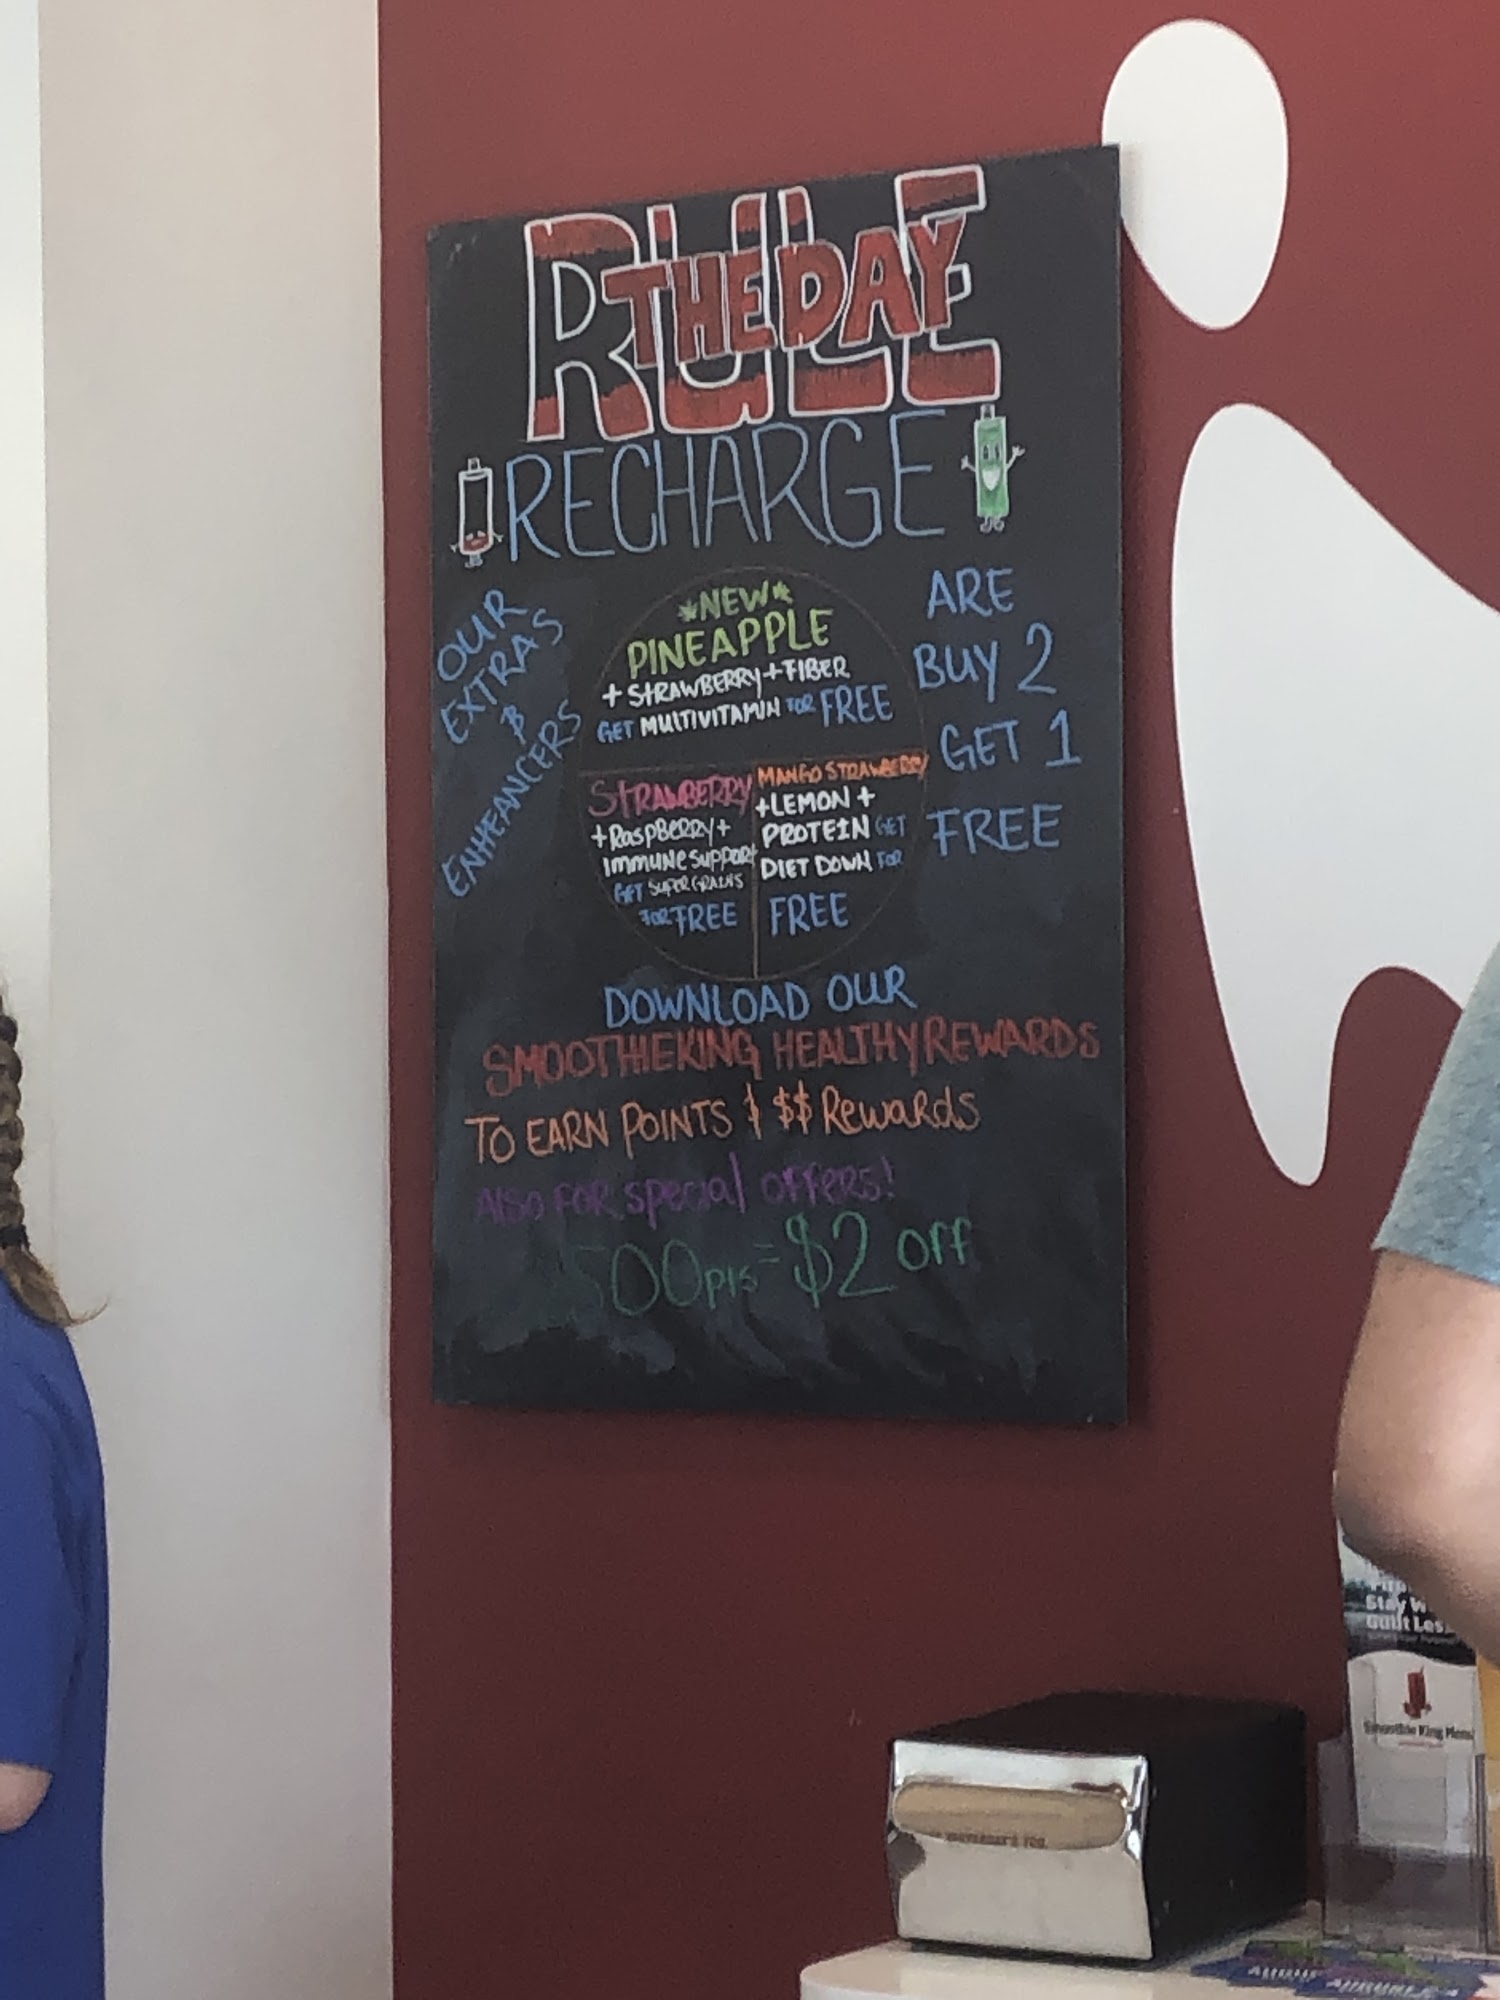 RULE
THE DAY
RECHARGE
OUR
EXTRAS
&
ENHEANCERS
*NEW*
PINEAPPLE
+ STRAWBERRY + FIBER
GET MULTIVITAMIN FOR FREE
STRAWBERRY
+ RaspBeRRy +
immuNe suppoRt
GET SUPER GRAINS
FOR FREE
MANGO STRAWBERRY
+ LEMON +
PROTEIN GET
DIET DOWN FOR
FREE
ARE
BUY 2
GET 1
FREE
DOWNLOAD OUR
SMOOTHIEKING HEALTHY REWARDS
TO EARN POINTS & $$ Rewards
Also FOR special offers!
500pts = $2 off
Stay W
Guilt Les
Smoothie King Menu